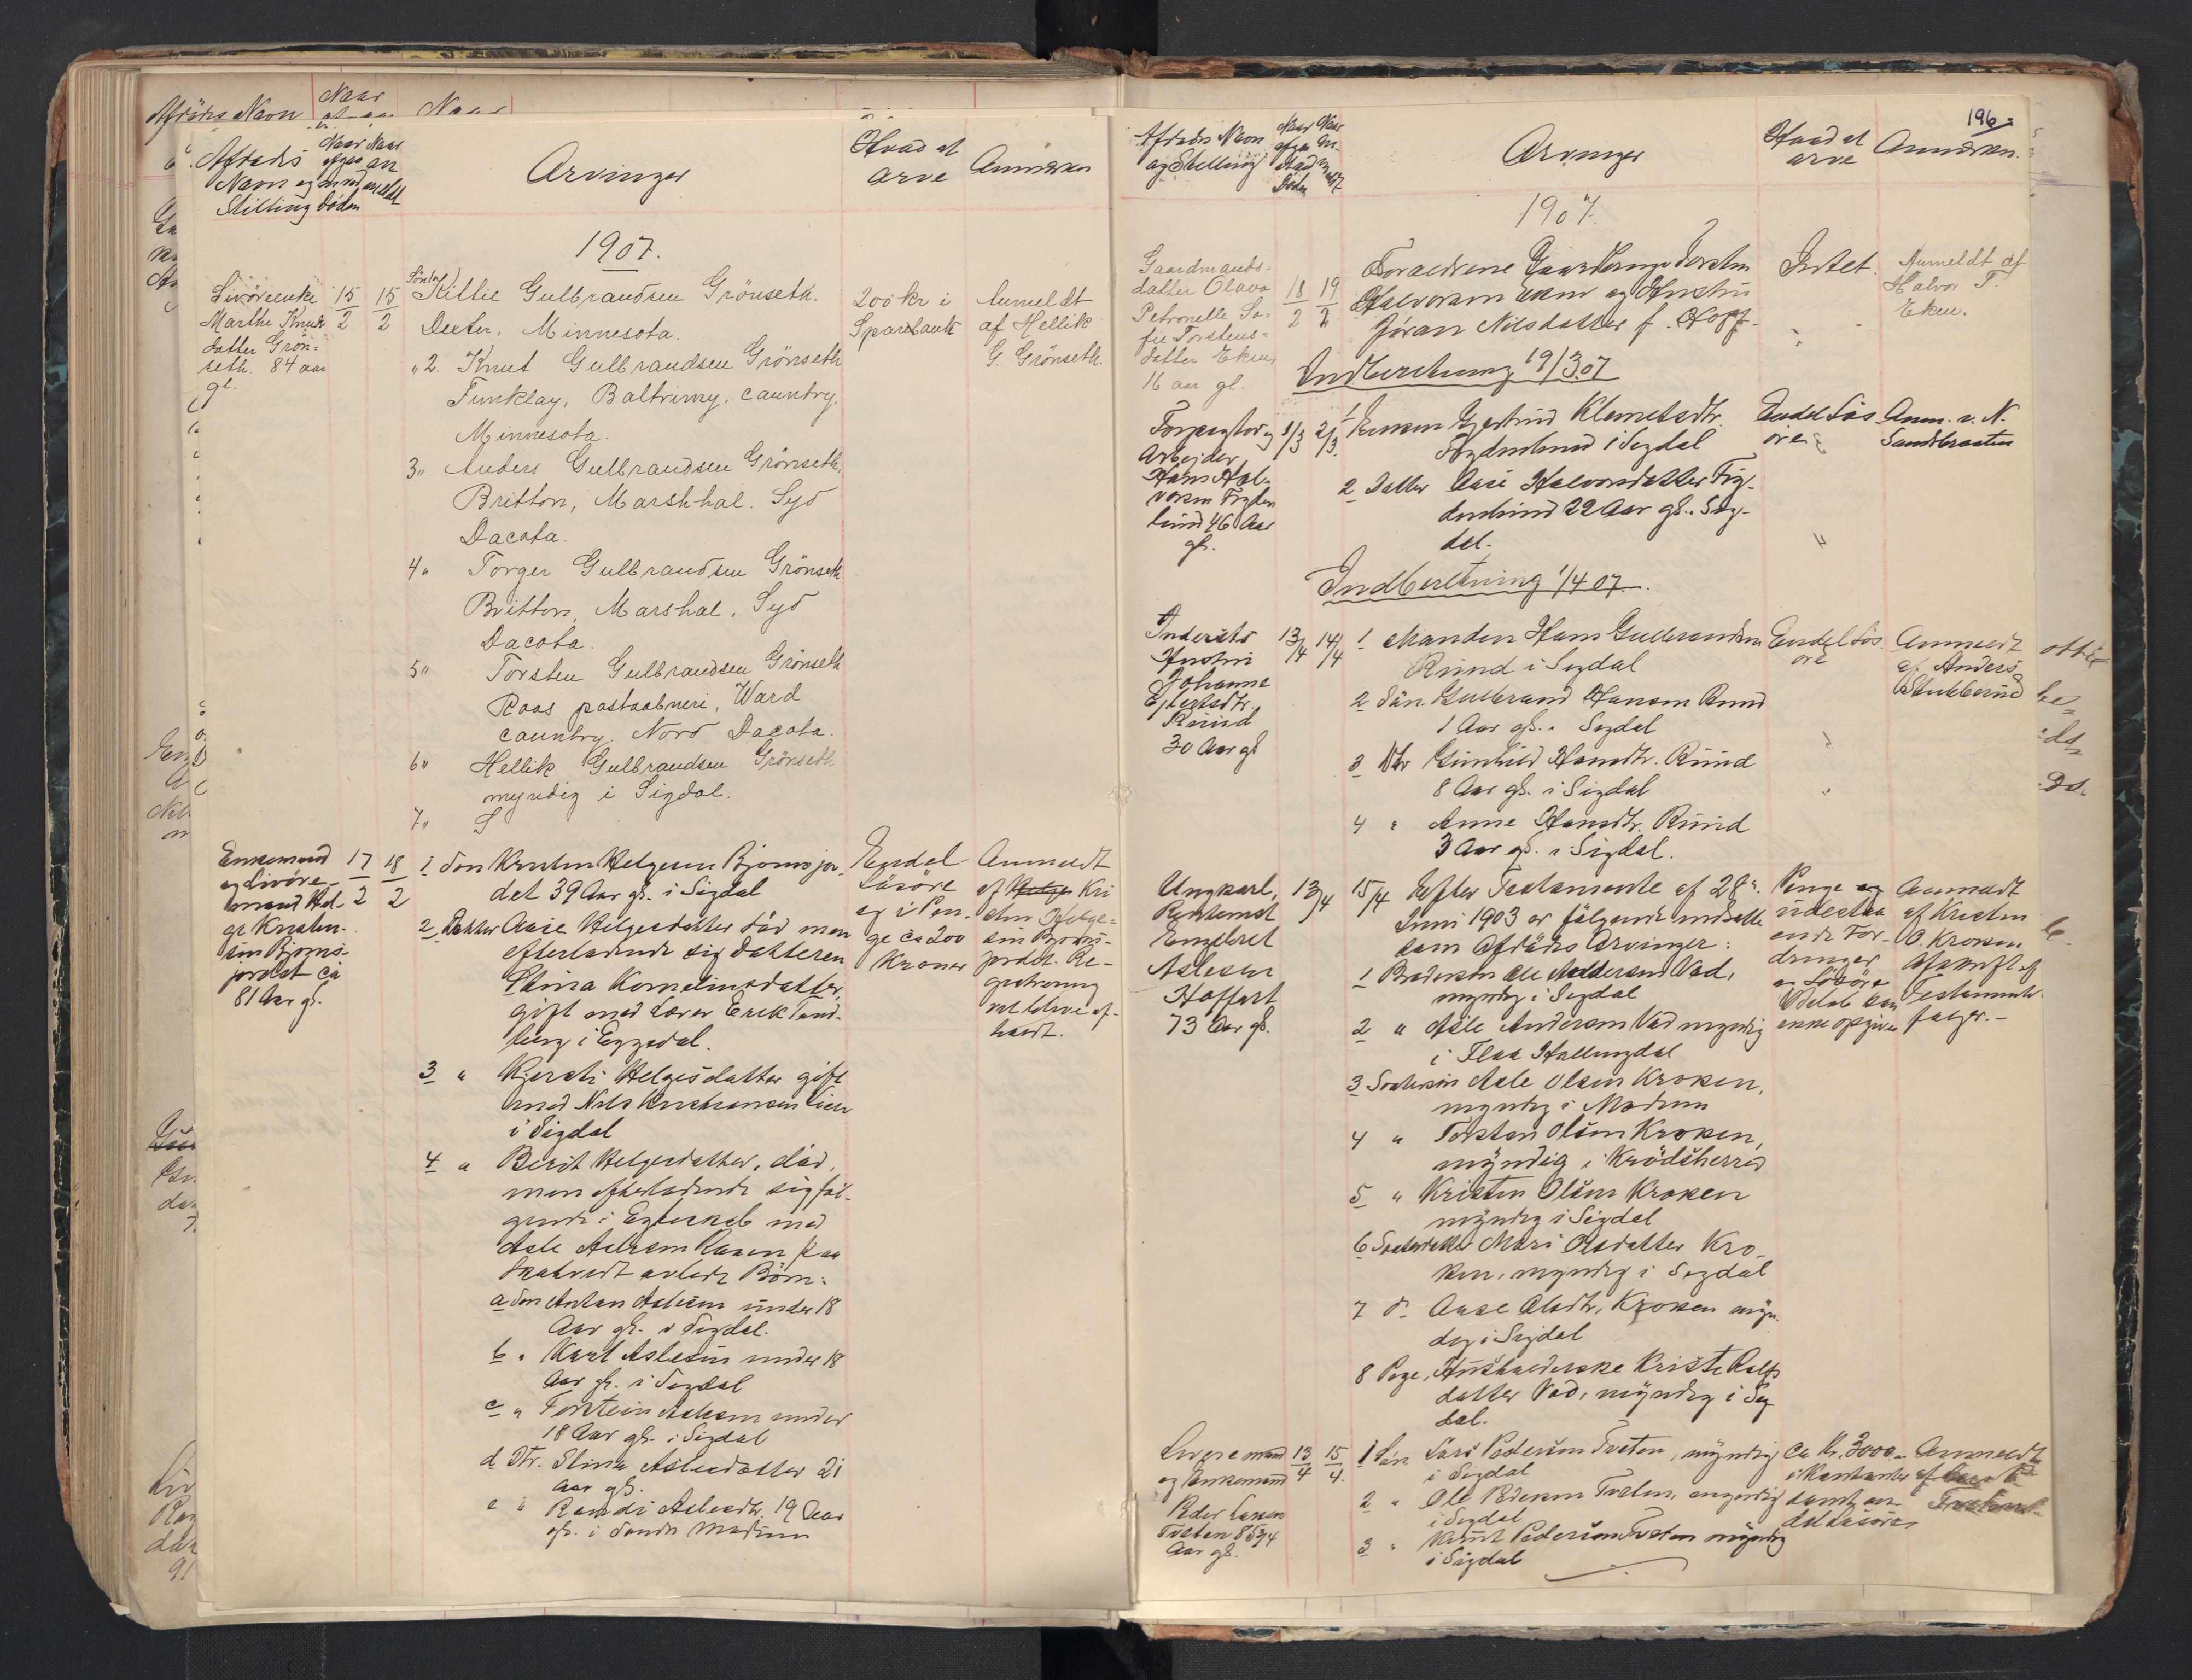 Afdødes Navn
Naar
Naar
Afdødes
Navn og
Stilling
Naar
afgaa
med
Døden
Naar
an
meldt
Arvinger
Hvad at
arve
Anmærkn
1907.
Livöreenke
Marthe Knuds
datter Grön-
seth. 84 aar
gl.
15/2
15/2
Sönner
Kittil Gulbrandsen Grönseth.
Dexter, Minnesota.
"2. Knut Gulbrandsen Grönseth
Funklay, Baltrimy. cauntry.
Minnesota.
3" Anders Gulbrandsen Grönseth,
Britton, Marshhal. Syd
Dacota.
4" Torger Gulbrandsen Grönseth
Britton, Marshal. Syd
Dacota.
5" Torsten Gulbrandsen Grönseth
Roos postaabneri, Ward
cauntry. Nord Dacota.
6" Hellik Gulbrandsen Grönseth
myndig i Sigdal.
7" S
200 kr i
Sparebank
Anmeldt
af Hellik
G. Grönseth.
Enkemand
og Livöre-
mand Hel-
ge Kristen-
sen Bjorns-
jordet ca
81 Aar gl.
17/2
18/2
1 Søn Kristen Helgesen Bjornsjor-
det 39 Aar gl. i Sigdal
2 Datter Aase Helgesdatter död men
efterladende sig Datteren
Stina Kornelinsdatter,
gift med Lærer Erik Tand-
berg i Eggedal.
3 " Kjersti Helgesdatter gift
med Nils Kristiansen Lien
i Sigdal
4 " Berit Helgesdatter, död,
men efterladende sig föl-
gende i Egteskab med
Asle Aslesen Raaen paa
Skatvedt avlede Börn:
a Søn Anton Aslesen under 18
Aar gl. i Sigdal.
b " Karl Aslesen under 18
Aar gl. i Sigdal
c " Torstein Aslesen under
18 Aar gl. i Sigdal
d Dtr. Stina Aslesdatter 21
Aar gl.
e " Randi Aslesdtr. 19 Aar
gl. i Søndre Modum
Endel
Lösöre
og i Pen-
ge ca 200
Kroner
Anmeldt
af Helge Kri
sten Helge-
sen Bjorns-
jordet. Re-
gistrering
vil blive af-
holdt.
196
Afdødes Navn
og Stilling
Naar
afgaa
med
Døden
Naar
an
meldt
Arvinger
Hvad at
arve
Anmærkn.
1907.
Gaardmands-
datter Olava
Petronelle So-
fie Torstens-
datter Eken,
16 aar gl.
18/2
19/2
Forældrene Gaardbruger Torsten
Halvorsen Eken og Hustru
Jöran Nilsdatter f. Hoff.
Intet.
Anmeldt af
Halvor T.
Eken.
Indberetning 19/3 07
Forpagter og
Arbejder
Hans Hal-
vorsen Fryden
lund 46 Aar
gl.
1/3
2/3.
1 Enken Gjertrud Klemetsdtr.
Frydenlund i Sigdal
2 Datter Aase Halvorsdatter Fry-
denlund 22 Aar gl. Sig-
dal.
Endel Lös
öre
Anm. v. N.
Sandbraaten
Indberetning 1/4 07.
Inderste
Hustru
Johanne
Ejlertsdtr.
Ruud
30 Aar gl
13/4
14/4
1 Manden Hans Gulbrandsen
Ruud i Sigdal
2 Sön Gulbrand Hansen Ruud
1 Aar gl. Sigdal
3 Dtr Gunhild Hansdtr. Ruud
8 Aar gl. i Sigdal
4 " Anne Hansdtr. Ruud
3 Aar gl. i Sigdal.
Endel Lös
öre
Anmeldt
af Anders
Stubberud
Ungkarl,
Rentenist
Engebret
Aslesen
Hoffart
73 Aar gl.
13/4
15/4
Efter Testamente af 28
Juni 1903 er fölgende indsatte
som Afdödes Arvinger:
1 Brodersøn Ole Andersen Vad,
myndig i Sigdal
2 " Asle Andersen Vad myndig
i Flaa Hallingdal
3 Søstersön Asle Olsen Kroken,
myndig i Modum
4 " Torsten Olsen Kroken,
myndig i Krödsherred
5 " Kristen Olsen Kroken
myndig i Sigdal
6 Søsterdatter Mari Olsdatter Kro-
ken, myndig i Sigdal
7 do Aase Olsdtr. Kroken myn-
dig i Sigdal
8 Pige, Husholderske Kristi Rolfs
datter Vad, myndig i Sig
dal.
Penge og
udestaa
ende For-
dringer
og Lösöre
Beløb kan
ikke opgives
Anmeldt
af Kristen
O. Kroken
Afskrift af
Testamente
følger.-
Livöremand
og Enkemand
Peder Larsen
Tveten 85 3/4
Aar gl.
13/4
15/4.
1 Sön Lars Pedersen Tveten, myndig
i Sigdal
2 " Ole Pedersen Tveten, myndig
i Sigdal
3 " Knut Pedersen Tveten myndig
i Sigdal
Ca Kr. 3000.-
i Kontanter
samt en
del Lösöre
Anmeldt